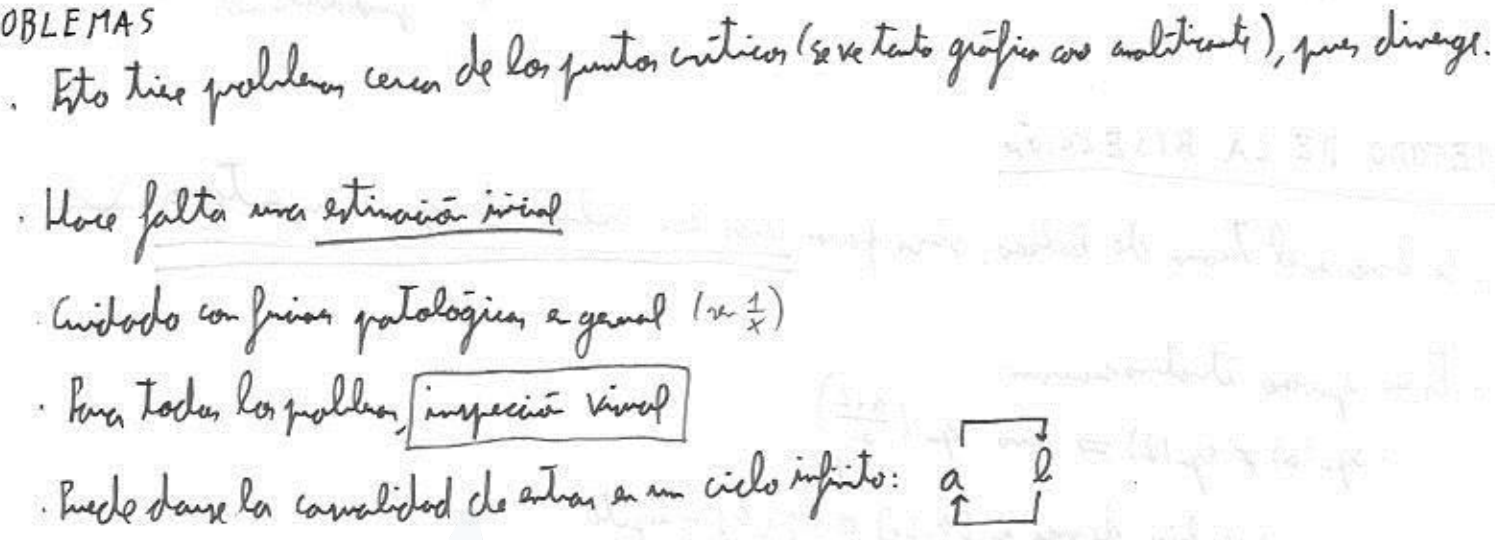 OBLEMAS
. Esto tiene problemas cerca de los puntos críticos (se ve tanto gráfica como analíticamente), pues diverge.
. Hace falta una estimación inicial
. Cuidado con funciones patológicas en general (sen 1/x)
. Para todos los problemas, inspección visual
. Puede darse la casualidad de entrar en un ciclo infinito: a b